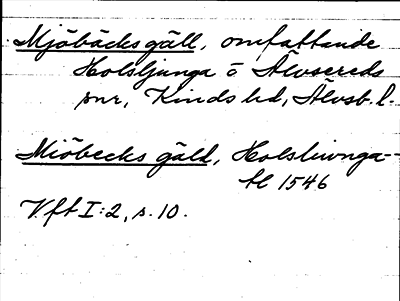 Mjöbäcks gäll, omfattande
Holsljunga o Älvsereds
snr, Kinds hd, Älvsb. l.
Miöbecks gäld, Holsliunga--
tl 1546
Vft I:2, s. 10.